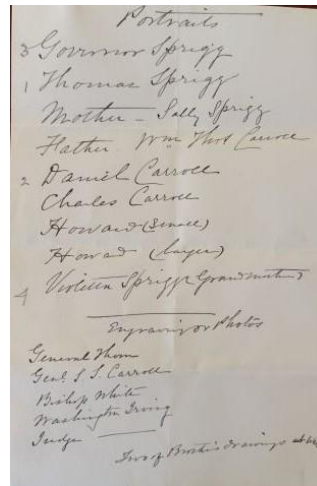 Portraits
3 Governor Sprigg
1 Thomas Sprigg
Mother - Sally Sprigg
Father. Wm Thos Carroll
2 Daniel Carroll
Charles Carroll
Howard (Small)
Howard (larger)
4 Violetta Sprigg (Grandmother)
Engraving or Photos
General Thom
Genl. S. S. Carroll
Bishop White
Washington Irving
Judge
Two of Drawings